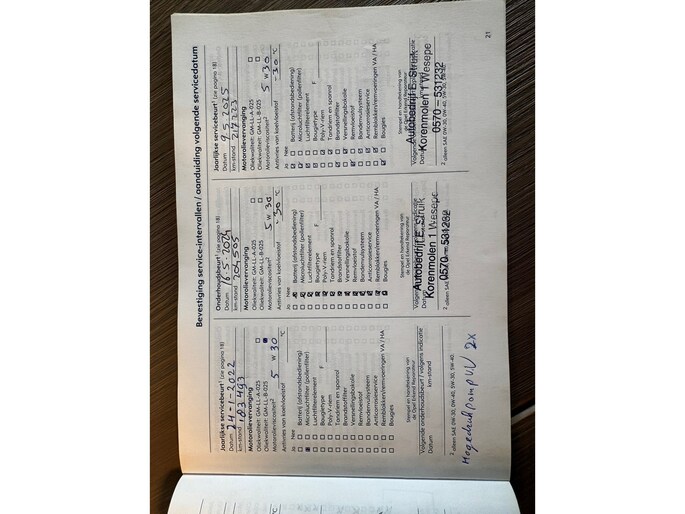 Bevestiging service-intervallen / aanduiding volgende servicedatum
Jaarlijkse servicebeurt¹ (zie pagina 18)
Datum 24-1-2022
km-stand 183493
Motorolievervanging
Oliekwaliteit: GM-LL-A-025
Oliekwaliteit: GM-LL-B-025
Motorolieviscositeit²
5 W 30
Antivries van koelvloeistof °C
Ja Nee
Batterij (afstandsbediening)
Microluchtfilter (pollenfilter)
Luchtfilterelement
Bougietype F
Poly-V-riem
Tandriem en spanrol
Brandstoffilter
Versnellingsbakolie
Remvloeistof
Bandenvulsysteem
Anticorrosieservice
Remblokken/remvoeringen VA / HA
Bougies
Stempel en handtekening van
de Opel Erkend Reparateur
Volgende onderhoudsbeurt / volgens indicatie
Datum km-stand
² alleen SAE 0W-30, 0W-40, 5W-30, 5W-40.
Hogedruk pomp VV 2x
Onderhoudsbeurt¹ (zie pagina 18)
Datum 16-5-2024
km-stand
Motorolievervanging
Oliekwaliteit: GM-LL-A-025
Oliekwaliteit: GM-LL-B-025
Motorolieviscositeit²
5 W 30
Antivries van koelvloeistof -30 °C
Ja Nee
Batterij (afstandsbediening)
Microluchtfilter (pollenfilter)
Luchtfilterelement
Bougietype F
Poly-V-riem
Tandriem en spanrol
Brandstoffilter
Versnellingsbakolie
Remvloeistof
Bandenvulsysteem
Anticorrosieservice
Remblokken/remvoeringen VA / HA
Bougies
Stempel en handtekening van
de Opel Erkend Reparateur
Autobedrijf E. Struik
Korenmolen 1 Wesepe
0570 - 531232
Jaarlijkse servicebeurt¹ (zie pagina 18)
Datum 9-5-2025
km-stand 217223
Motorolievervanging
Oliekwaliteit: GM-LL-A-025
Oliekwaliteit: GM-LL-B-025
Motorolieviscositeit²
5 W 30
Antivries van koelvloeistof -30 °C
Ja Nee
Batterij (afstandsbediening)
Microluchtfilter (pollenfilter)
Luchtfilterelement
Bougietype F
Poly-V-riem
Tandriem en spanrol
Brandstoffilter
Versnellingsbakolie
Remvloeistof
Bandenvulsysteem
Anticorrosieservice
Remblokken/remvoeringen VA / HA
Bougies
Stempel en handtekening van
de Opel Erkend Reparateur
Autobedrijf E. Struik
Korenmolen 1 Wesepe
0570 - 531232
21